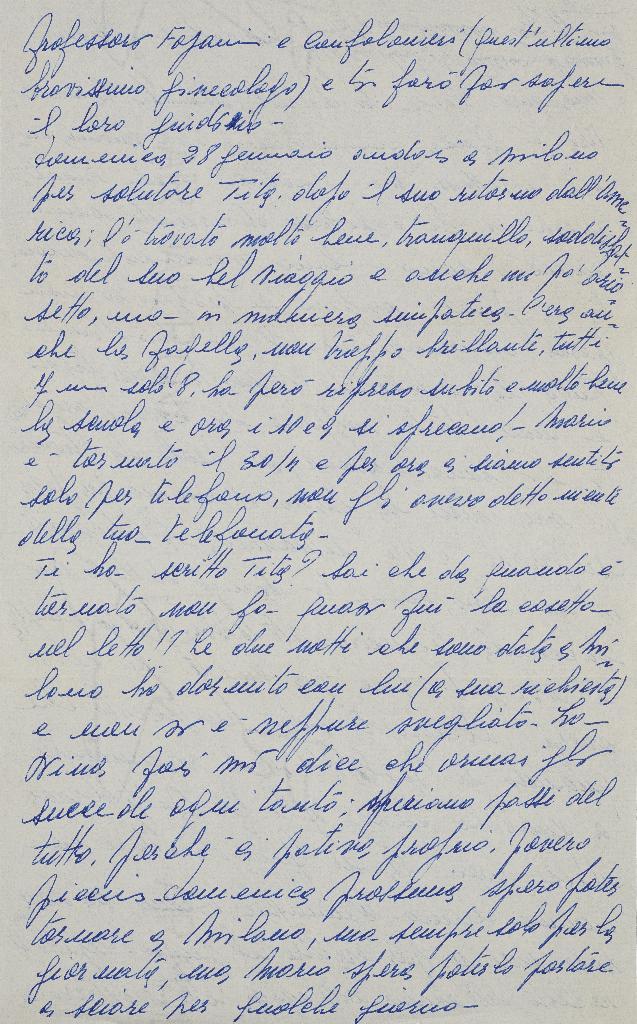 Professori Fojani e Confalonieri (quest'ultimo
bravissimo ginecologo) e ti farò far sapere
il loro giudizio -
Domenica 28 gennaio andai a Milano
per salutare Tità, dopo il suo ritorno dall'Ame=
rica; l'ò trovato molto bene, tranquillo, soddisfat=
to del suo bel viaggio e anche un po' gras=
setto, ma in maniera simpatica. C'era an=
che la pagella, non troppo brillante, tutti
7 un solo 8, ha però ripreso subito e molto bene
la scuola e ora i 10 e 9 si sprecano! - Mario
è tornato il 30/1 e per ora ci siamo sentiti
solo per telefono, non gli avevo detto niente
della tua telefonata -
Ti ha scritto Tità? Sai che da quando è
tornato non fa quasi più la casetta
nel letto!? Le due notti che sono stata a Mi=
lano ho dormito con lui (a sua richiesta)
e non si è neppure svegliato - La
Nina poi mi dice che ormai gli
succede ogni tanto; speriamo passi del
tutto, perché ci pativa proprio, povero
piccino - Domenica prossima spero poter
tornare a Milano, ma sempre solo per la
giornata, ma Mario spera poterlo portare
a sciare per qualche giorno -